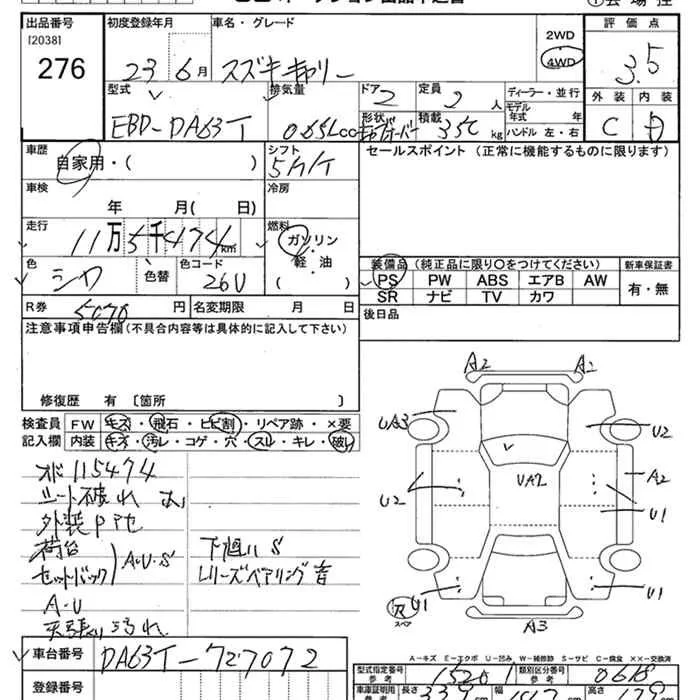 出品番号 初度登録年月 車名・グレード 評価点
[2038]
276
23 6月 スズキキャリー 2WD
4WD 3.5
型式 排気量 ドア 定員 ディーラー・並行 外装 内装
EBD-DA63T 0.65Lcc 2 2人 モデル年式 年
形状 積載 350kg ハンドル 左・右 C D
車歴 シフト セールスポイント (正常に機能するものに限ります)
自家用・( ) 5MT
車検 冷房
年 月( 日)
走行 燃料
11万5千474km ガソリン・軽・油
色 シロ 色替 色コード 26U ( )
装備品 (純正品に限り○をつけてください) 新車保証書
PS PW ABS エアB AW 有・無
SR ナビ TV カワ
R券 5070円 名変期限 月 日 後日品
注意事項申告欄 (不具合内容等は具体的に記入して下さい)
修復歴 有 〔箇所 〕
検査員 FW キズ・飛石・ヒビ割・リペア跡・×要
記入欄 内装 キズ・汚レ・コゲ・穴・スレ・キレ・破レ
メド 115474
シート破れ
外装
荷台
セットバック A・U・S
A・U
天張り汚れ
下廻り S
レリーズベアリング音
A2 A2
UA3 U2
U2 UA2 A2
U1
U1 U1
スペア
A3
車台番号 DA63T-727072
登録番号
A-キズ E-エクボ U-凹み W-補修跡 S-サビ C-腐食 XX-交換済
型式指定番号 参考 15201 類別区分番号 参考 0618
車庫証明用 参考 長さ 339 幅 147